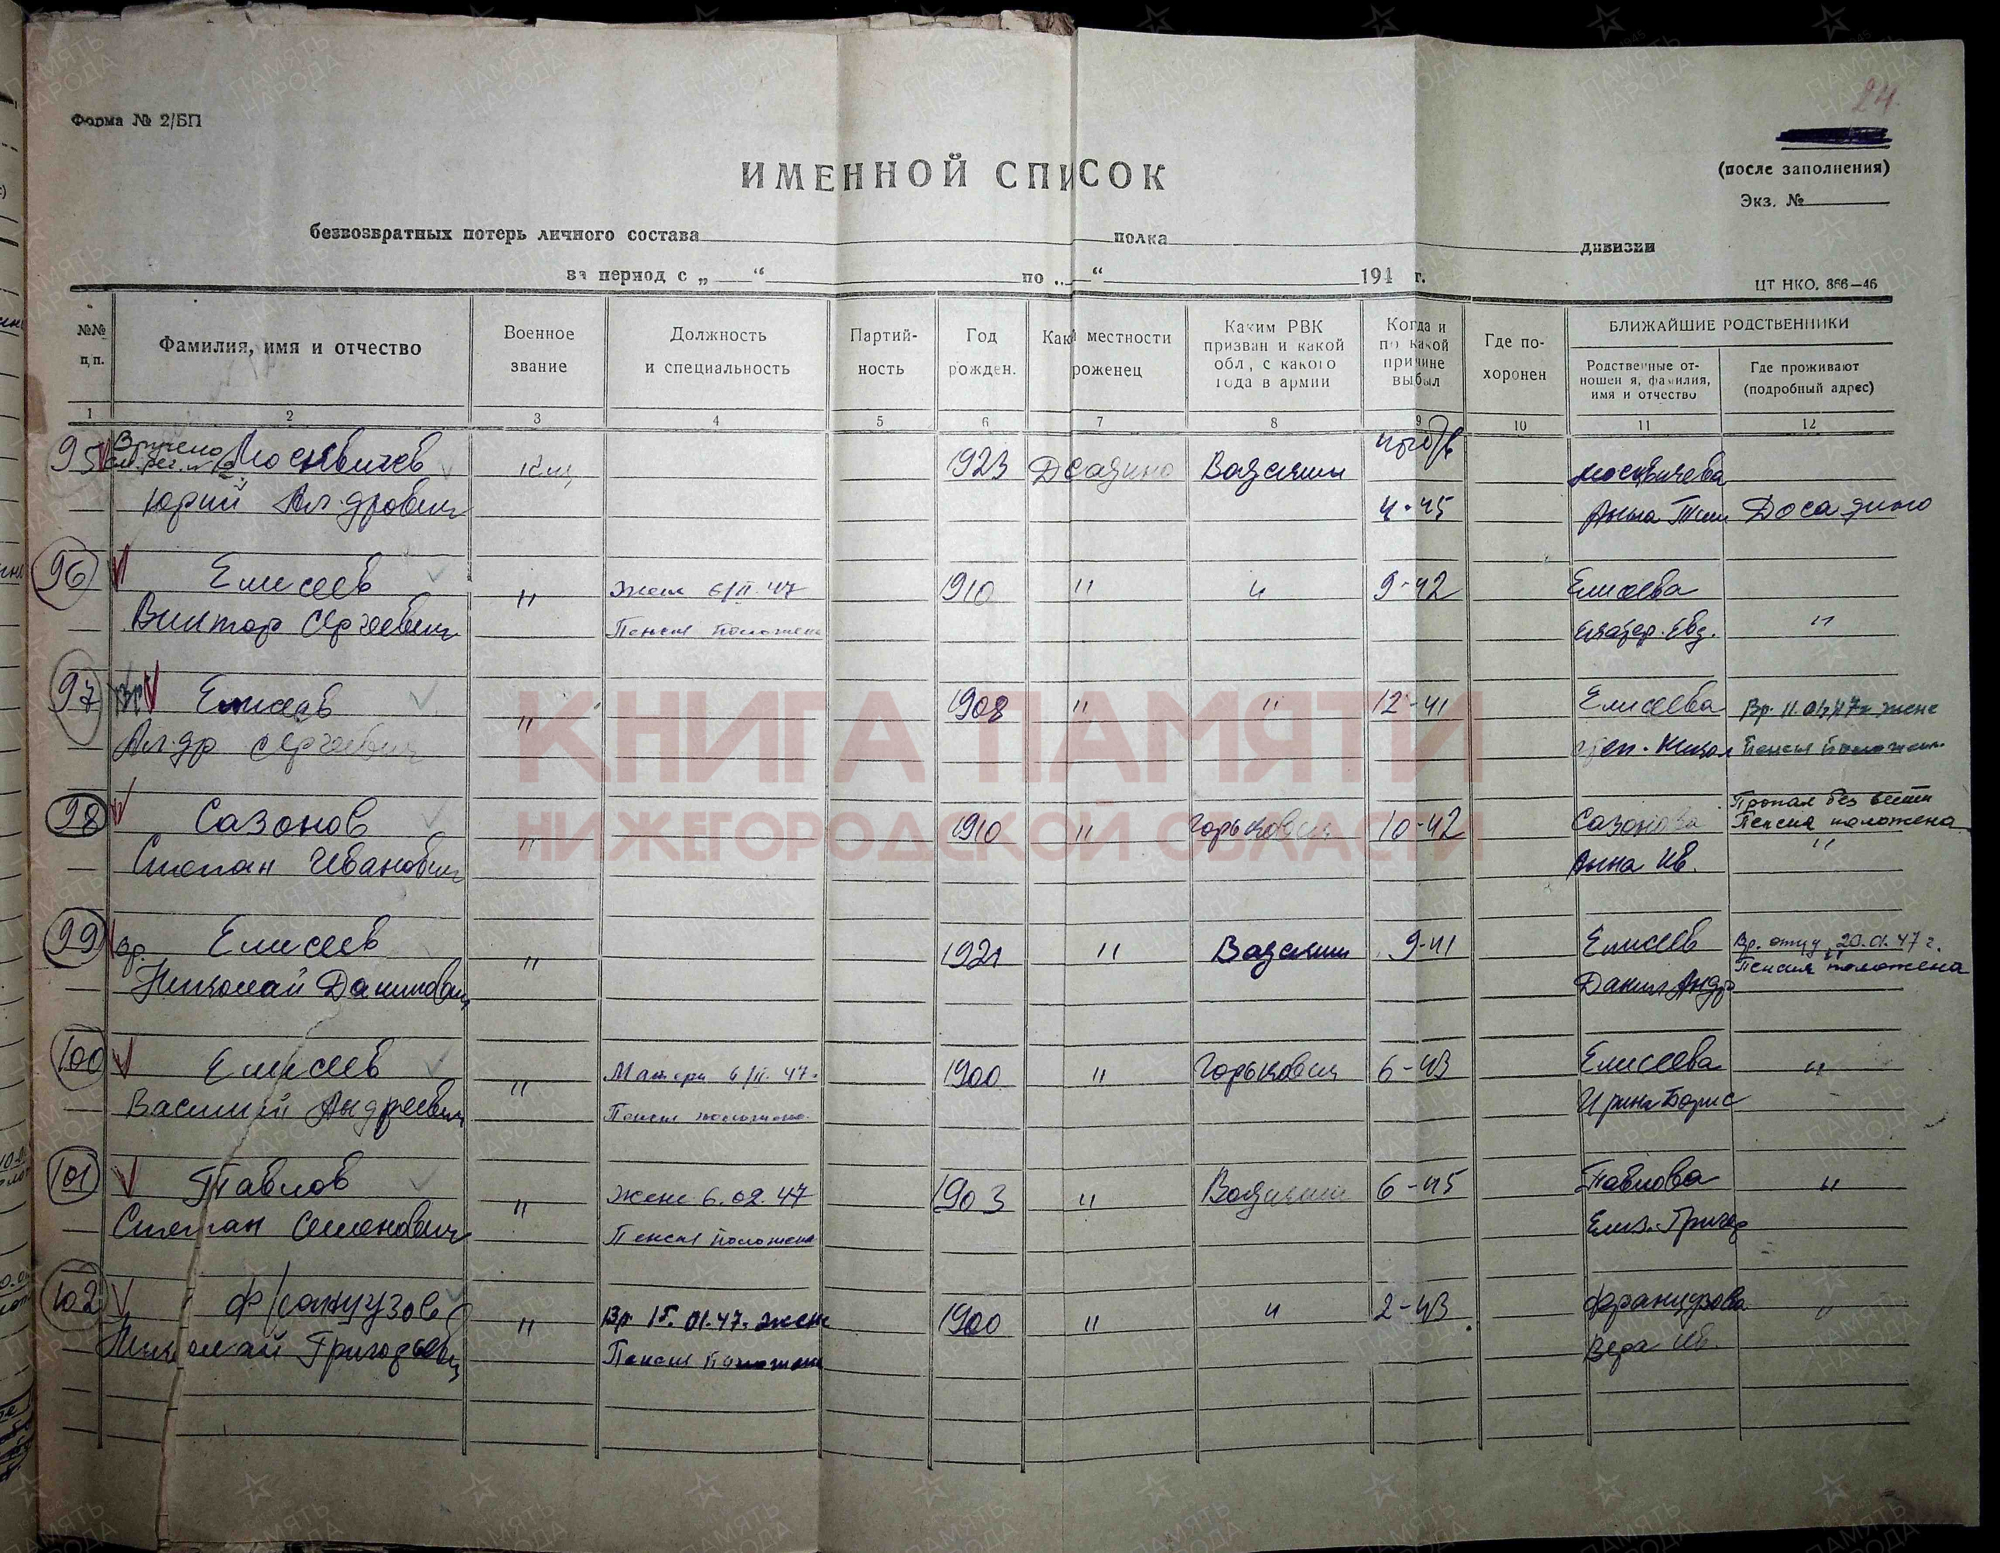 24.
Форма № 2/БП
(после заполнения)
Экз. №
ИМЕННОЙ СПИСОК
безвозвратных потерь личного состава полка дивизии
за период с „ “ по „ “ 194 г.
ЦТ НКО. 866—46
№№ п/п.
Фамилия, имя и отчество
Военное звание
Должность и специальность
Партий-ность
Год рожден.
Как местности уроженец
Каким РВК призван и какой обл, с какого года в армии
Когда и по какой причине выбыл
Где по-хоронен
БЛИЖАЙШИЕ РОДСТВЕННИКИ
Родственные от-ношен я, фамилия, имя и отчество
Где проживают (подробный адрес)
1 2 3 4 5 6 7 8 9 10 11 12
95 Вручено Москвичев 1923 Досадино Вадским Москвичева
Юрий Ал-дрович 4-45 Анна Тим Досадино
96 Елисеев " Жене 6/II.47 1910 " " 9-42 Елисеева
Виктор Сергеевич Пенсия положена Екатер. Евд. "
97 Вр Елисеев " 1908 " " 12-41 Елисеева Вр. 11.01.47г жене
Ал-др Сергеевич Пенсия положен.
98 Сазонов " 1910 " Горьковским 10-42 Сазонова Пропал без вести
Пенсия положена
Степан Иванович Анна Ив. "
99 Вр. Елисеев " 1921 " Вадским 9-41 Елисеев Вр. отцу 20.01.47 г.
Николай Данилович Данил Андр Пенсия положена
100 Елисеев " Матери 6/II.47. 1900 " Горьковским 6-43 Елисеева "
Василий Андреевич Пенсия положена Ирина Борис
101 Павлов " Жене 6.02.47 1903 " Вадским 6-45 Павлова "
Степан Семенович Пенсия положена Елиз. Григор
102 Французов " Вр 15.01.47. жене 1900 " " 2-43 Французова "
Николай Григорьевич Пенсия положена Вера Ив.
КНИГА ПАМЯТИ
НИЖЕГОРОДСКОЙ ОБЛАСТИ
ПАМЯТЬ НАРОДА